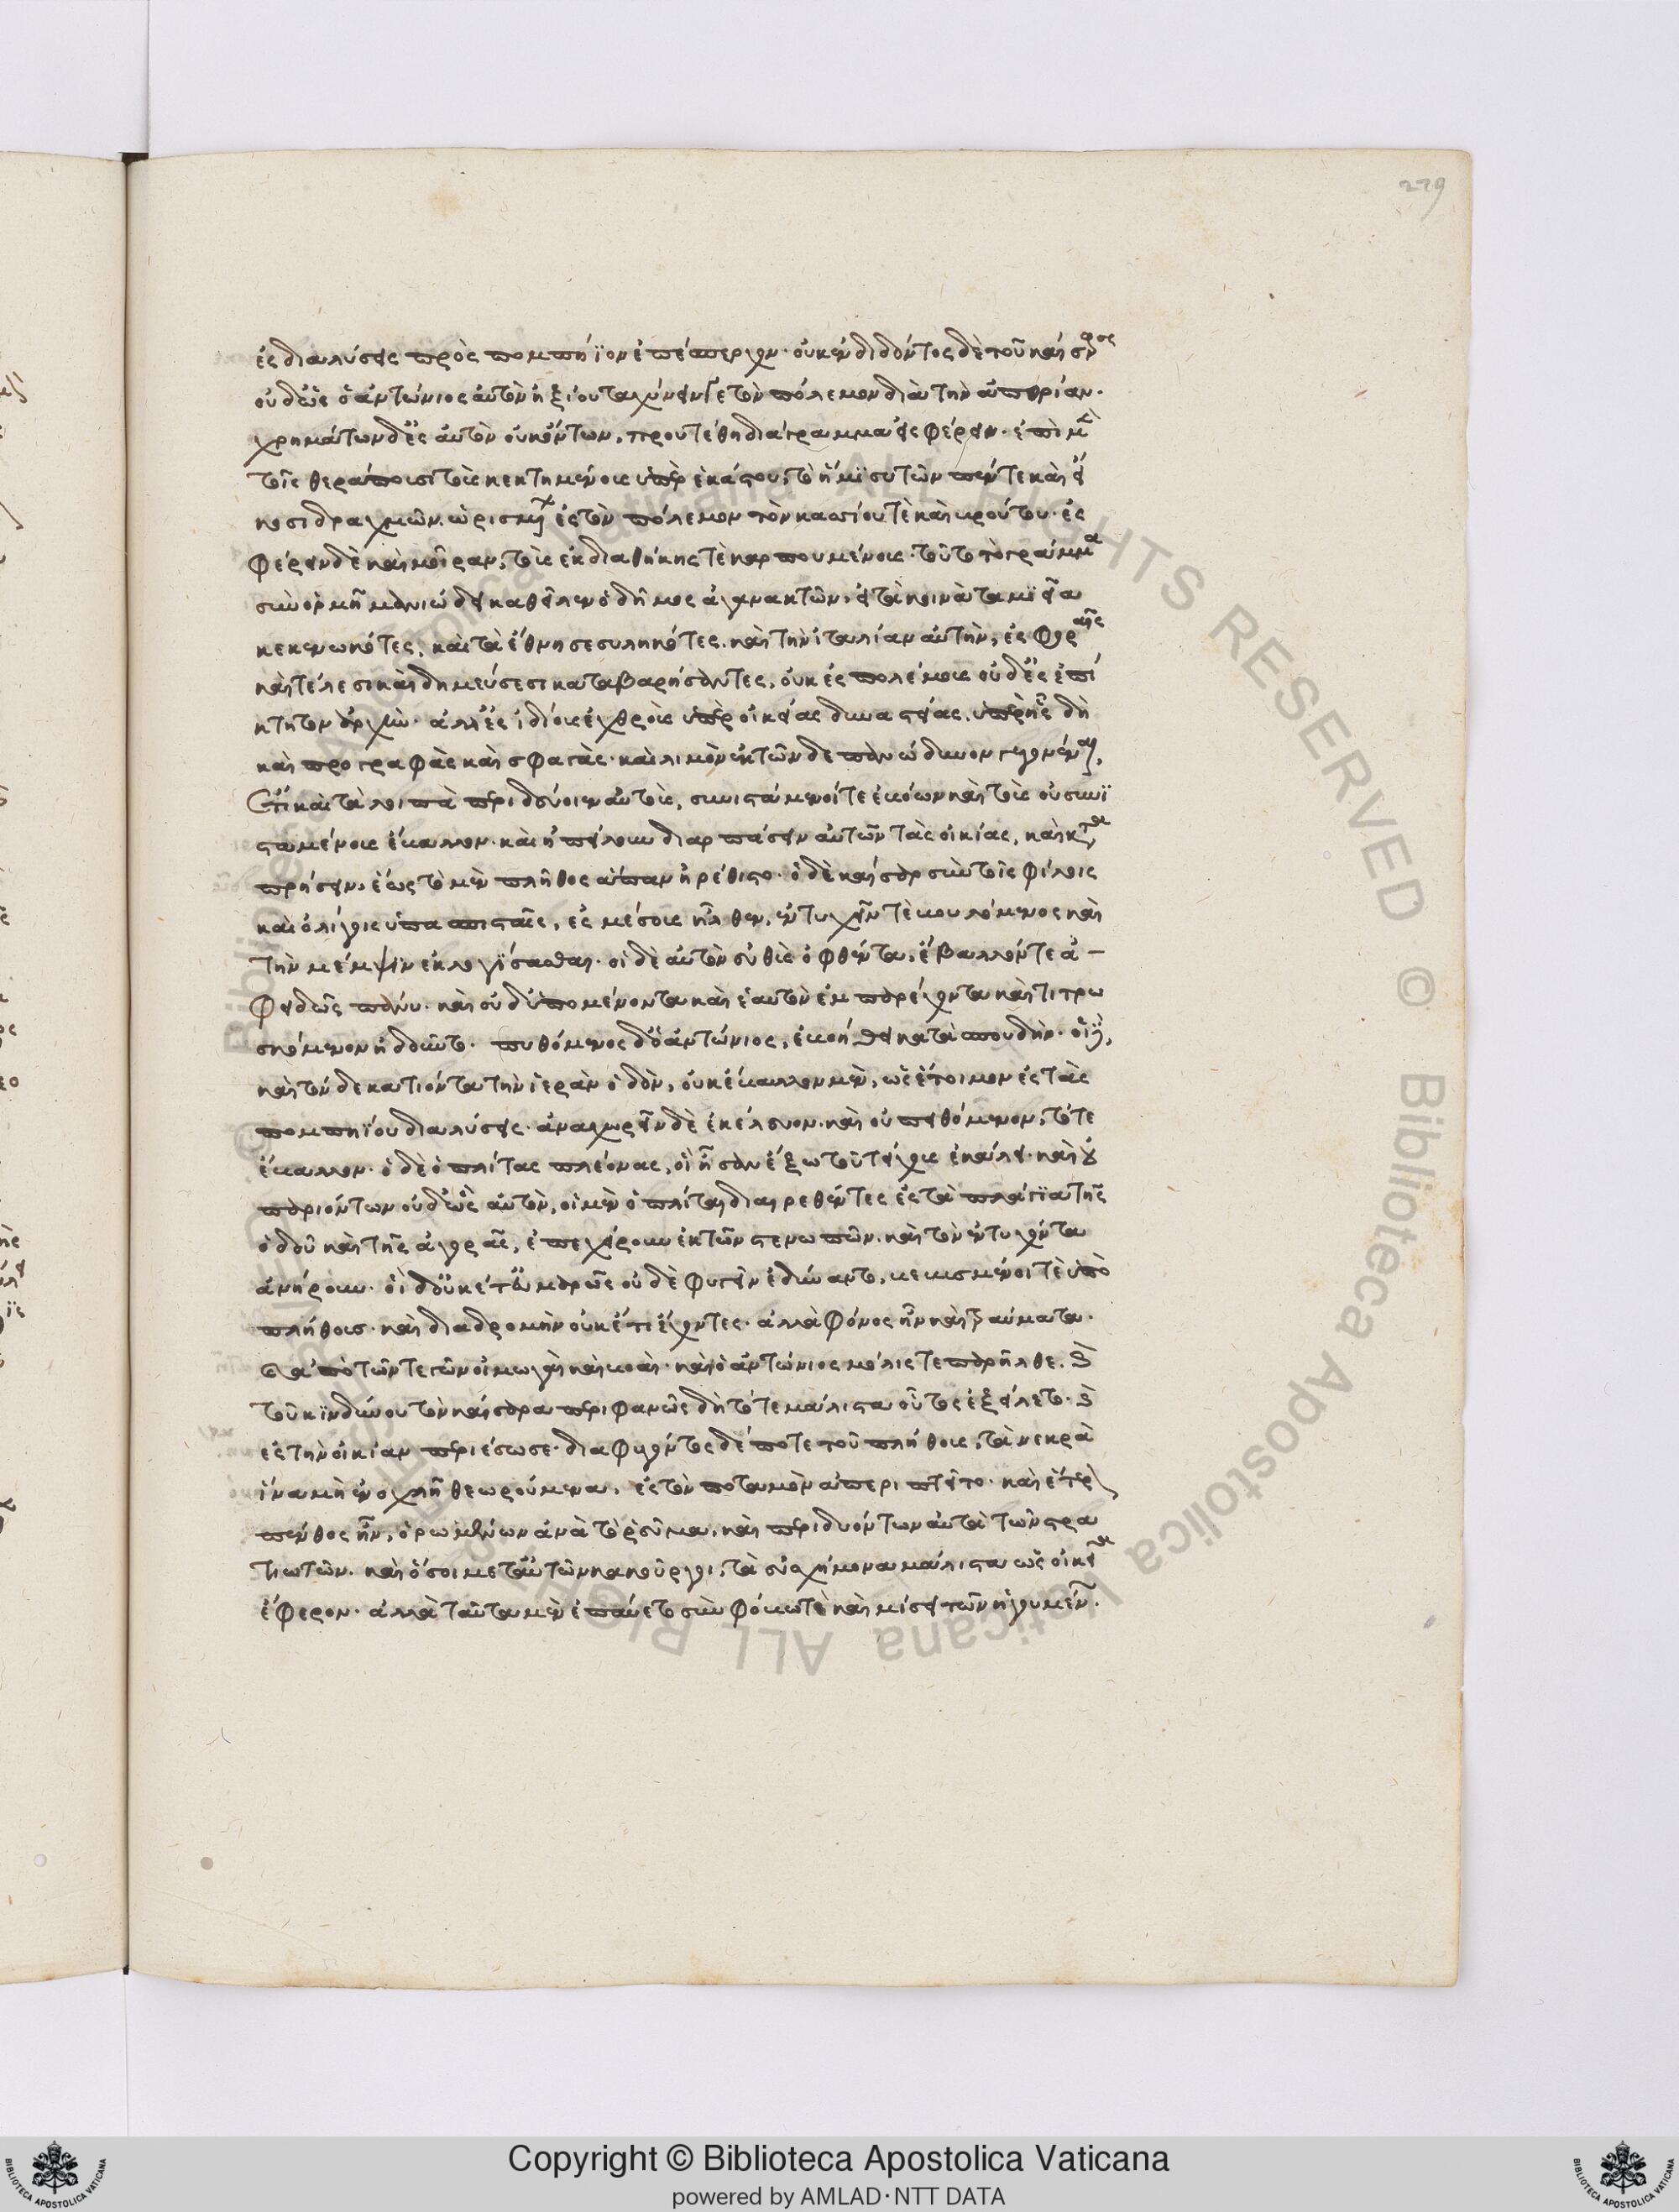 279
ἐς διαλύσεις πρὸς πομπήϊον ἐπέσπερχον. οὐκ ἐνδιδόντος δὲ τοῦ καίσαρος
οὐδ ὣς ὁ ἀντώνιος αὐτὸν ἠξίου ταχύνειν ἐς τὸν πόλεμον διὰ τὴν ἀπορίαν.
χρημάτων δ ἐς αὐτὸν οὐκ ὄντων, προυτέθη διάγραμμα ἐσφέρειν. ἐπὶ μὲν
τοῖς θεράπουσι τοὺς κεκτημένους ὑπὲρ ἑκάστου, τὸ ἥμισυ τῶν πέντε καὶ εἴ
κοσι δραχμῶν. ὡρισμένων ἐς τὸν πόλεμον τὸν κασσίου τὲ καὶ βρούτου. ἐσ
φέρειν δὲ καὶ μοῖραν, τοὺς ἐκ διαθήκης τὲ καρπουμένους. τοῦτο τὸ γράμμα
σὺν ὁρμῇ μανιώδει καθεῖλεν ὁ δῆμος ἀγανακτῶν, εἰ τὰ κοινὰ ταμιεῖα
κεκενωκότες, καὶ τὰ ἔθνη σεσυληκότες. καὶ τὴν ἰταλίαν αὐτὴν, ἐσφοραῖς
καὶ τέλεσι καὶ δημεύσεσι καταβαρήσαντες, οὐκ ἐς πολέμους οὐδ ἐς ἐπί
κτητον ἀρχὴν. ἀλλ ἐς ἰδίους ἐχθροὺς ὑπὲρ οἰκείας δυναστείας. ὑπὲρ ἧς δὴ
καὶ προγραφὰς καὶ σφαγὰς. καὶ λιμὸν ἐκ τῶνδε πανώδυνον γεγονέναι,
ἔτι καὶ τὰ λοιπὰ περιδύοιεν αὐτοὺς, συνιστάμενοί τε ἐβόων καὶ τοὺς οὐ συνϊ
σταμένους ἔβαλλον. καὶ ἠπείλουν διαρπάσειν αὐτῶν τὰς οἰκίας, καὶ κατα
πρήσειν, ἕως τὸ μὲν πλῆθος ἅπαν ἠρέθιστο. ὁ δὲ καίσαρ σὺν τοῖς φίλοις
καὶ ὀλίγοις ὑπασπισταῖς, ἐς μέσους ἦλθεν, ἐντυχεῖν τὲ βουλόμενος καὶ
τὴν μέμψιν ἐκλογίσασθαι. οἱ δὲ αὐτὸν εὐθὺς ὀφθέντα, ἔβαλλόν τε ἀ-
φειδῶς πάνυ. καὶ οὐδ ὑπομένοντα καὶ ἑαυτὸν ἐμπαρέχοντα καὶ τιτρω
σκόμενον ἠδοῦντο. πυθόμενος δ ὁ ἀντώνιος, ἐβοήθει κατὰ σπουδὴν. οἱ δὲ,
καὶ τόνδε κατιόντα τὴν ἱερὰν ὁδὸν, οὐκ ἔβαλλον μὲν, ὡς ἕτοιμον ἐς τὰς
πομπηίου διαλύσεις. ἀναχωρεῖν δὲ ἐκέλευον. καὶ οὐ πειθόμενον, τότε
ἔβαλλον. ὁ δὲ ὁπλίτας πλέονας, οἳ ἦσαν ἔξω τοῦ τείχους ἐκάλει. καὶ οὐ
παριόντων οὐδ ὣς αὐτὸν, οἱ μὲν ὁπλῖται διαιρεθέντες ἐς τὰ πλάγϊα τῆς
ὁδοῦ καὶ τῆς ἀγορᾶς, ἐπεχείρουν ἐκ τῶν στενωπῶν. καὶ τὸν ἐντυχόντα
ἀνῄρουν. οἱ δ οὐκέτ εὐμαρῶς οὐδὲ φυγεῖν ἐδύναντο, βεβυσμένοι τὲ ὑπὸ
πλήθους. καὶ διαδρομὴν οὐκέτι ἔχοντες. ἀλλὰ φόνος ἦν καὶ τραύματα.
καὶ ἀπὸ τῶν τεγῶν οἰμωγαὶ καὶ βοαὶ. καὶ ὁ ἀντώνιος μόλις τε παρῆλθε. καὶ
τοῦ κινδύνου τὸν καίσαρα περιφανῶς δὴ τότε μάλιστα οὗτος ἐξείλετο. καὶ
ἐς τὴν οἰκίαν περιέσωσε. διαφυγόντος δέ ποτε τοῦ πλήθους, τὰ νεκρὰ
ἵνα μὴ ἐνοχλῇ θεωρούμενα, ἐς τὸν ποταμὸν ἀπερριπτεῖτο. καὶ ἕτερον
πένθος ἦν, ὁρωμένων ἀνὰ τὸ ῥεῦμα, καὶ περιδυόντων αὐτὰ τῶν στρα
τιωτῶν. καὶ ὅσοι μετ αὐτῶν κακοῦργοι, τὰ εὐσχήμονα μάλιστα ὡς οἰκεῖα
ἔφερον. ἀλλὰ ταῦτα μὲν ἐπαύετο σὺν φόβῳ τὲ καὶ μίσει τῶν ἡγουμένων.
Copyright © Biblioteca Apostolica Vaticana
powered by AMLAD·NTT DATA